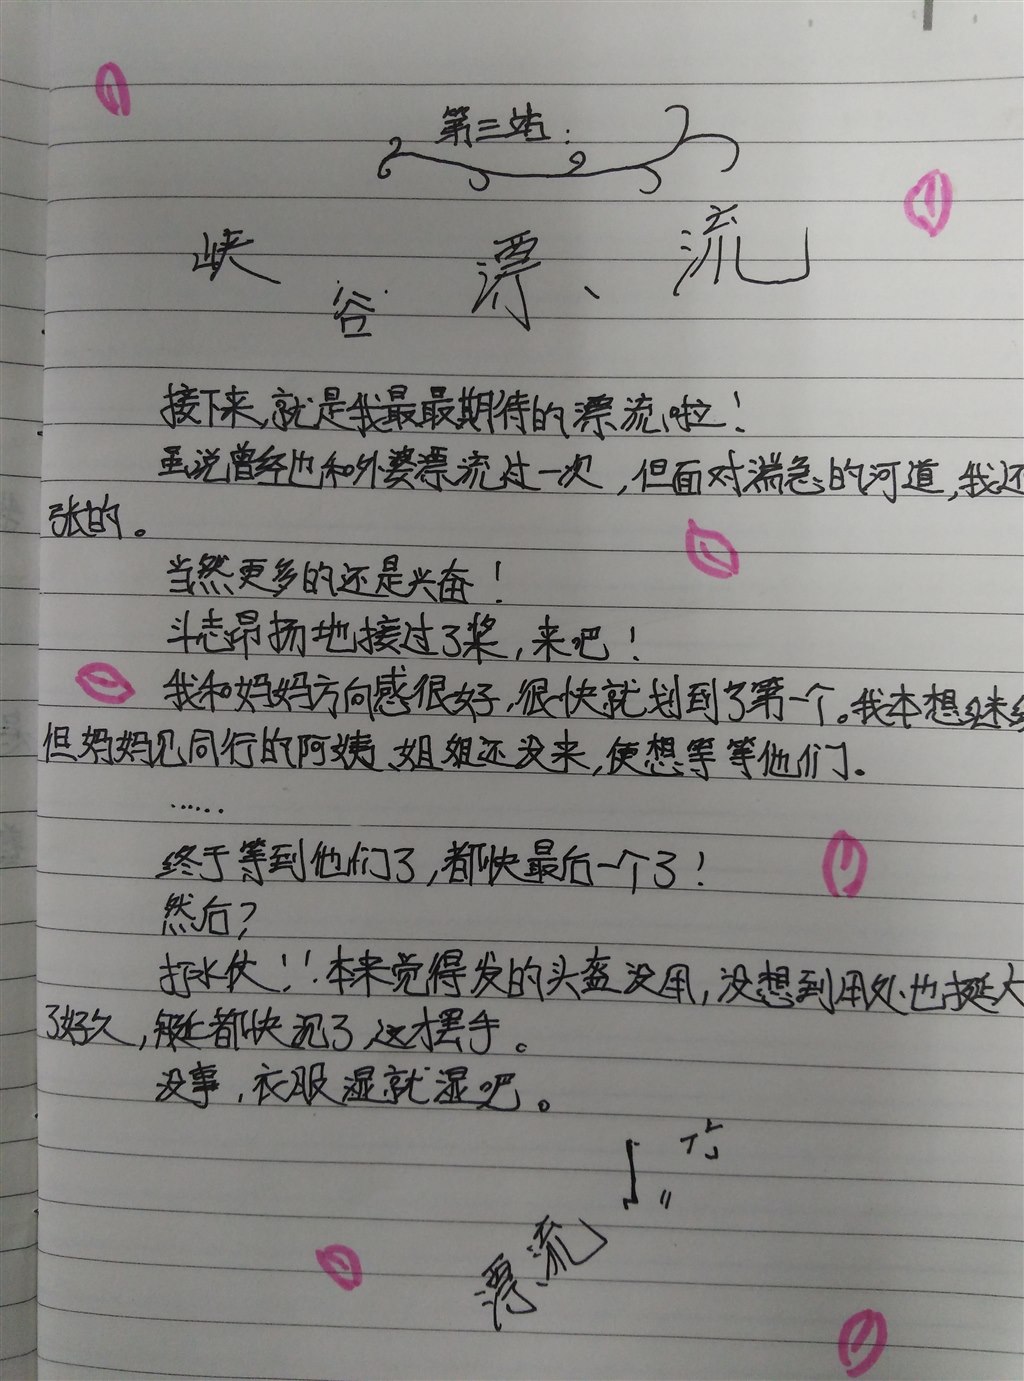 第三站:
峡谷漂、流
接下来,就是我最最期待的漂流啦!
虽说曾经也和外婆漂流过一次,但面对湍急的河道,我还
张的。
当然更多的还是兴奋!
斗志昂扬地接过了桨,来吧!
我和妈妈方向感很好,很快就划到了第一个。我本想继续
但妈妈见同行的阿姨、姐姐还没来,便想等等他们。
……
终于等到他们了,都快最后一个了!
然后?
打水仗!!本来觉得发的头盔没用,没想到用处也挺大
了好久,艇都快沉了,这才摆手。
没事,衣服湿就湿吧。
漂流